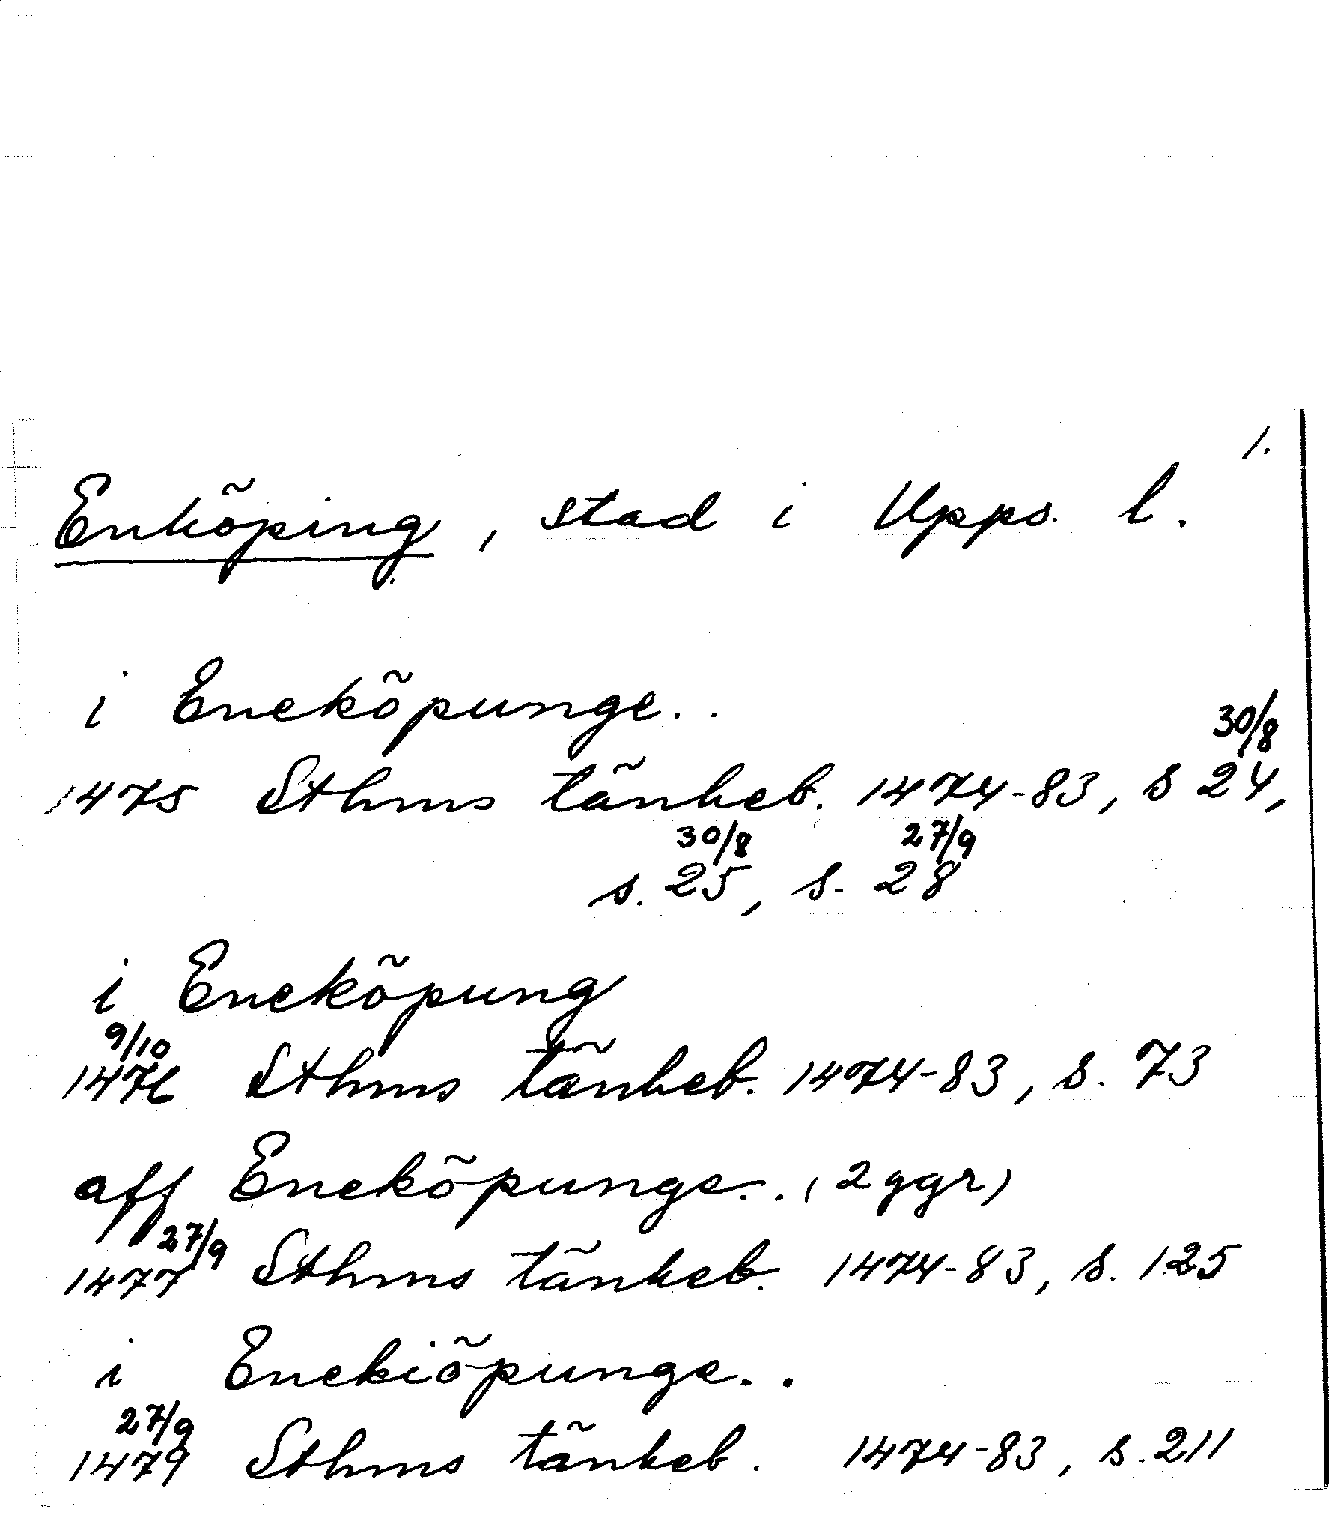 1.
Enköping, stad i Upps. l.
i Eneköpunge..
30/8
1475 Sthms tänkeb. 1474-83, s 24,
30/8 27/9
s. 25, s. 28
i Eneköpung
9/10
1476 Sthms tänkeb. 1474-83, s. 73
aff Eneköpunge.. (2 ggr)
27/9
1477 Sthms tänkeb. 1474-83, s. 125
i Enekiöpunge..
27/9
1479 Sthms tänkeb. 1474-83, s. 211